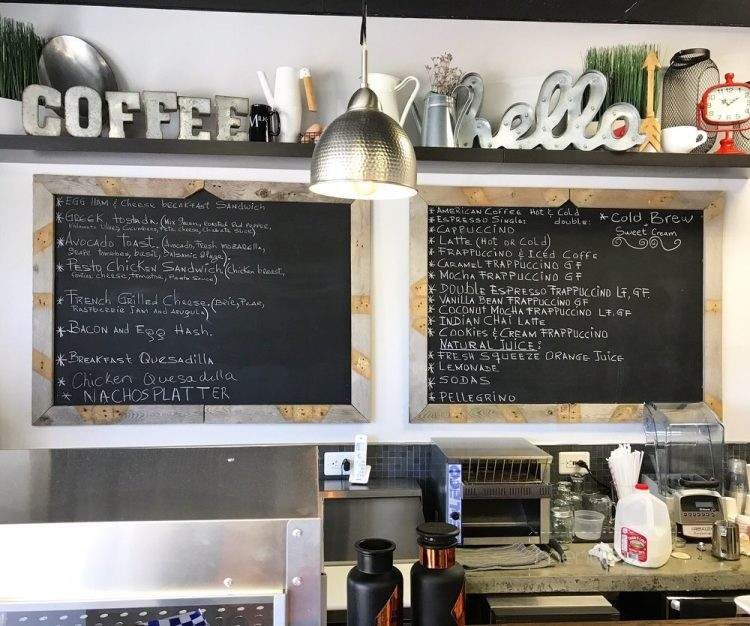 COFFEE
MILK
hello
*EGG HAM & Cheese breakfast Sandwich
*Greek tostada (Mix green, Roasted Red Pepper,
*Avocado Toast (Avocado, Fresh
Grape Tomatoes, basil, Balsamic
*Pesto Chicken Sandwich (Chicken breast,
cheese, tomatoe, Pesto Sauce)
*French Grilled Cheese, (Brie, Pear,
Raspberrie Jam and arugula)
*Bacon and Egg Hash.
*Breakfast Quesadilla
*Chicken Quesadilla
*NACHOS PLATTER
*American Coffee Hot & Cold
*Espresso Single: double:
*Cappuccino
*Latte (Hot or Cold)
*Frappuccino & Iced Coffe
*Caramel Frappuccino GF
*Mocha Frappuccino GF
*Double Espresso Frappuccino LF, GF
*Vanilla Bean Frappuccino GF
*Coconut Mocha Frappuccino LF. GF
*Indian Chai Latte
*Cookies & Cream Frappuccino
Natural Juice:
*Fresh Squeeze Orange Juice
*Lemonade
*Sodas
*Pellegrino
*Cold Brew
*Sweet Cream